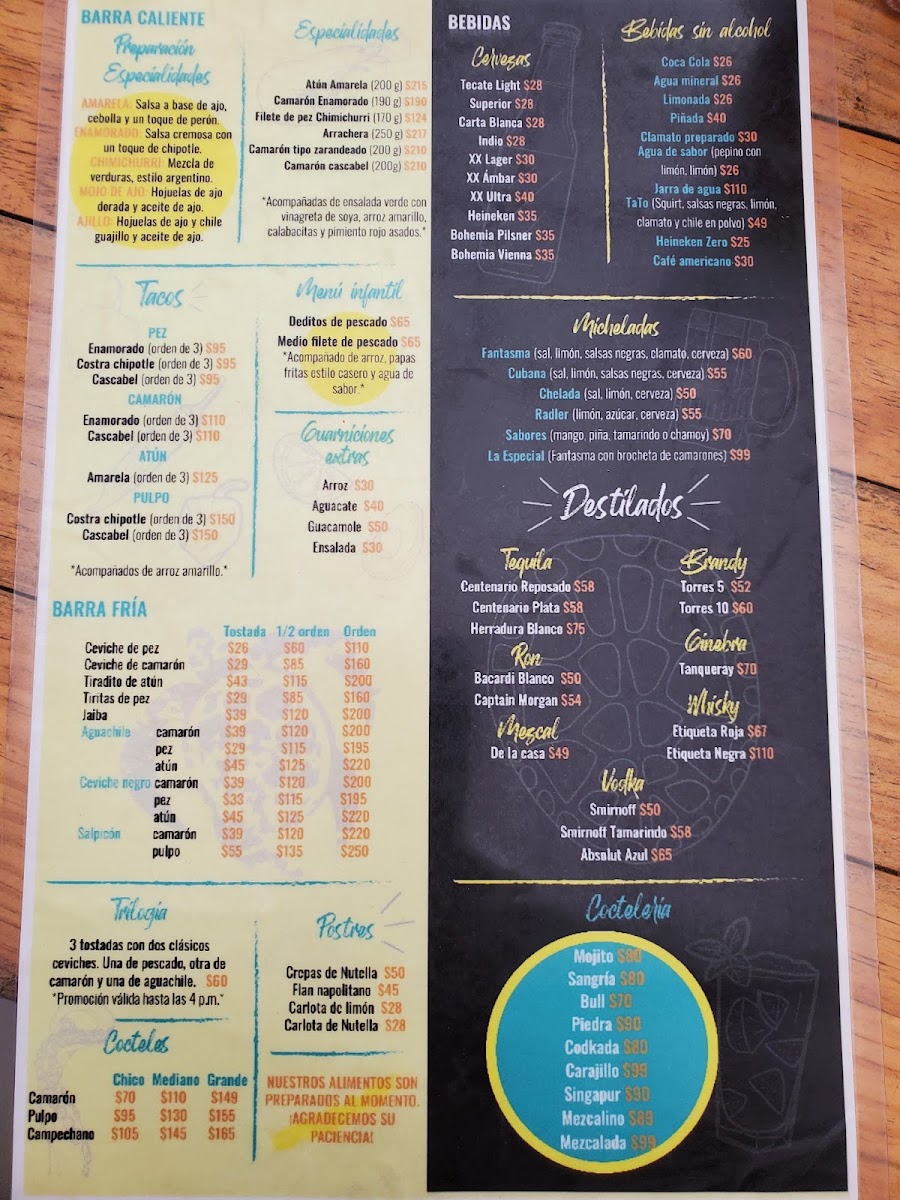 BARRA CALIENTE
Preparación
Especialidades
AMARELA: Salsa a base de ajo,
cebolla y un toque de perón.
ENAMORADO: Salsa cremosa con
un toque de chipotle.
CHIMICHURRI: Mezcla de
verduras, estilo argentino.
MOJO DE AJO: Hojuelas de ajo
dorada y aceite de ajo.
AJILLO: Hojuelas de ajo y chile
guajillo y aceite de ajo.
Especialidades
Atún Amarela (200 g) $215
Camarón Enamorado (190 g) $190
Filete de pez Chimichurri (170 g) $124
Arrachera (250 g) $217
Camarón tipo zarandeado (200 g) $210
Camarón cascabel (200g) $210
*Acompañadas de ensalada verde con
vinagreta de soya, arroz amarillo,
calabacitas y pimiento rojo asados.*
Tacos
PEZ
Enamorado (orden de 3) $95
Costra chipotle (orden de 3) $95
Cascabel (orden de 3) $95
CAMARÓN
Enamorado (orden de 3) $110
Cascabel (orden de 3) $110
ATÚN
Amarela (orden de 3) $125
PULPO
Costra chipotle (orden de 3) $150
Cascabel (orden de 3) $150
*Acompañados de arroz amarillo.*
Menú infantil
Deditos de pescado $65
Medio filete de pescado $65
*Acompañado de arroz, papas
fritas estilo casero y agua de
sabor.*
Guarniciones
extras
Arroz $30
Aguacate $40
Guacamole $50
Ensalada $30
BARRA FRÍA
Tostada 1/2 orden Orden
Ceviche de pez $26 $60 $110
Ceviche de camarón $29 $85 $160
Tiradito de atún $43 $115 $200
Tiritas de pez $29 $85 $160
Jaiba $39 $120 $200
Aguachile camarón $39 $120 $200
pez $29 $115 $195
atún $45 $125 $220
Ceviche negro camarón $39 $120 $200
pez $33 $115 $195
atún $45 $125 $220
Salpicón camarón $39 $120 $220
pulpo $55 $135 $250
Trilogía
3 tostadas con dos clásicos
ceviches. Una de pescado, otra de
camarón y una de aguachile. $60
*Promoción válida hasta las 4 p.m.*
Cocteles
Chico Mediano Grande
Camarón $70 $110 $149
Pulpo $95 $130 $155
Campechano $105 $145 $165
Postres
Crepas de Nutella $50
Flan napolitano $45
Carlota de limón $28
Carlota de Nutella $28
NUESTROS ALIMENTOS SON
PREPARADOS AL MOMENTO.
¡AGRADECEMOS SU
PACIENCIA!
BEBIDAS
Cervezas
Tecate Light $28
Superior $28
Carta Blanca $28
Indio $28
XX Lager $30
XX Ámbar $30
XX Ultra $40
Heineken $35
Bohemia Pilsner $35
Bohemia Vienna $35
Bebidas sin alcohol
Coca Cola $26
Agua mineral $26
Limonada $26
Piñada $40
Clamato preparado $30
Agua de sabor (pepino con
limón, limón) $26
Jarra de agua $110
TaTo (Squirt, salsas negras, limón,
clamato y chile en polvo) $49
Heineken Zero $25
Café americano $30
Micheladas
Fantasma (sal, limón, salsas negras, clamato, cerveza) $60
Cubana (sal, limón, salsas negras, cerveza) $55
Chelada (sal, limón, cerveza) $50
Radler (limón, azúcar, cerveza) $55
Sabores (mango, piña, tamarindo o chamoy) $70
La Especial (Fantasma con brocheta de camarones) $99
Destilados
Tequila
Centenario Reposado $58
Centenario Plata $58
Herradura Blanco $75
Ron
Bacardi Blanco $50
Captain Morgan $54
Mezcal
De la casa $49
Brandy
Torres 5 $52
Torres 10 $60
Ginebra
Tanqueray $70
Whisky
Etiqueta Roja $67
Etiqueta Negra $110
Vodka
Smirnoff $50
Smirnoff Tamarindo $58
Absolut Azul $65
Coctelería
Mojito $80
Sangría $80
Bull $70
Piedra $90
Codkada $80
Carajillo $99
Singapur $90
Mezcalino $89
Mezcalada $99